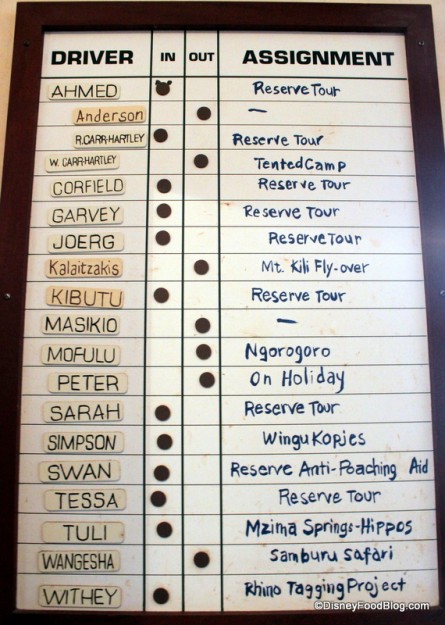 DRIVER IN OUT ASSIGNMENT
AHMED Reserve Tour
Anderson —
R.CARR-HARTLEY Reserve Tour
W. CARR-HARTLEY Tented Camp
CORFIELD Reserve Tour
GARVEY Reserve Tour
JOERG Reserve Tour
Kalaitzakis Mt. Kili Fly-over
KIBUTU Reserve Tour
MASIKIO —
MOFULU Ngorogoro
PETER On Holiday
SARAH Reserve Tour
SIMPSON Wingu Kopjes
SWAN Reserve Anti-Poaching Aid
TESSA Reserve Tour
TULI Mzima Springs-Hippos
WANGESHA Samburu Safari
WITHEY Rhino Tagging Project
©DisneyFoodBlog.com